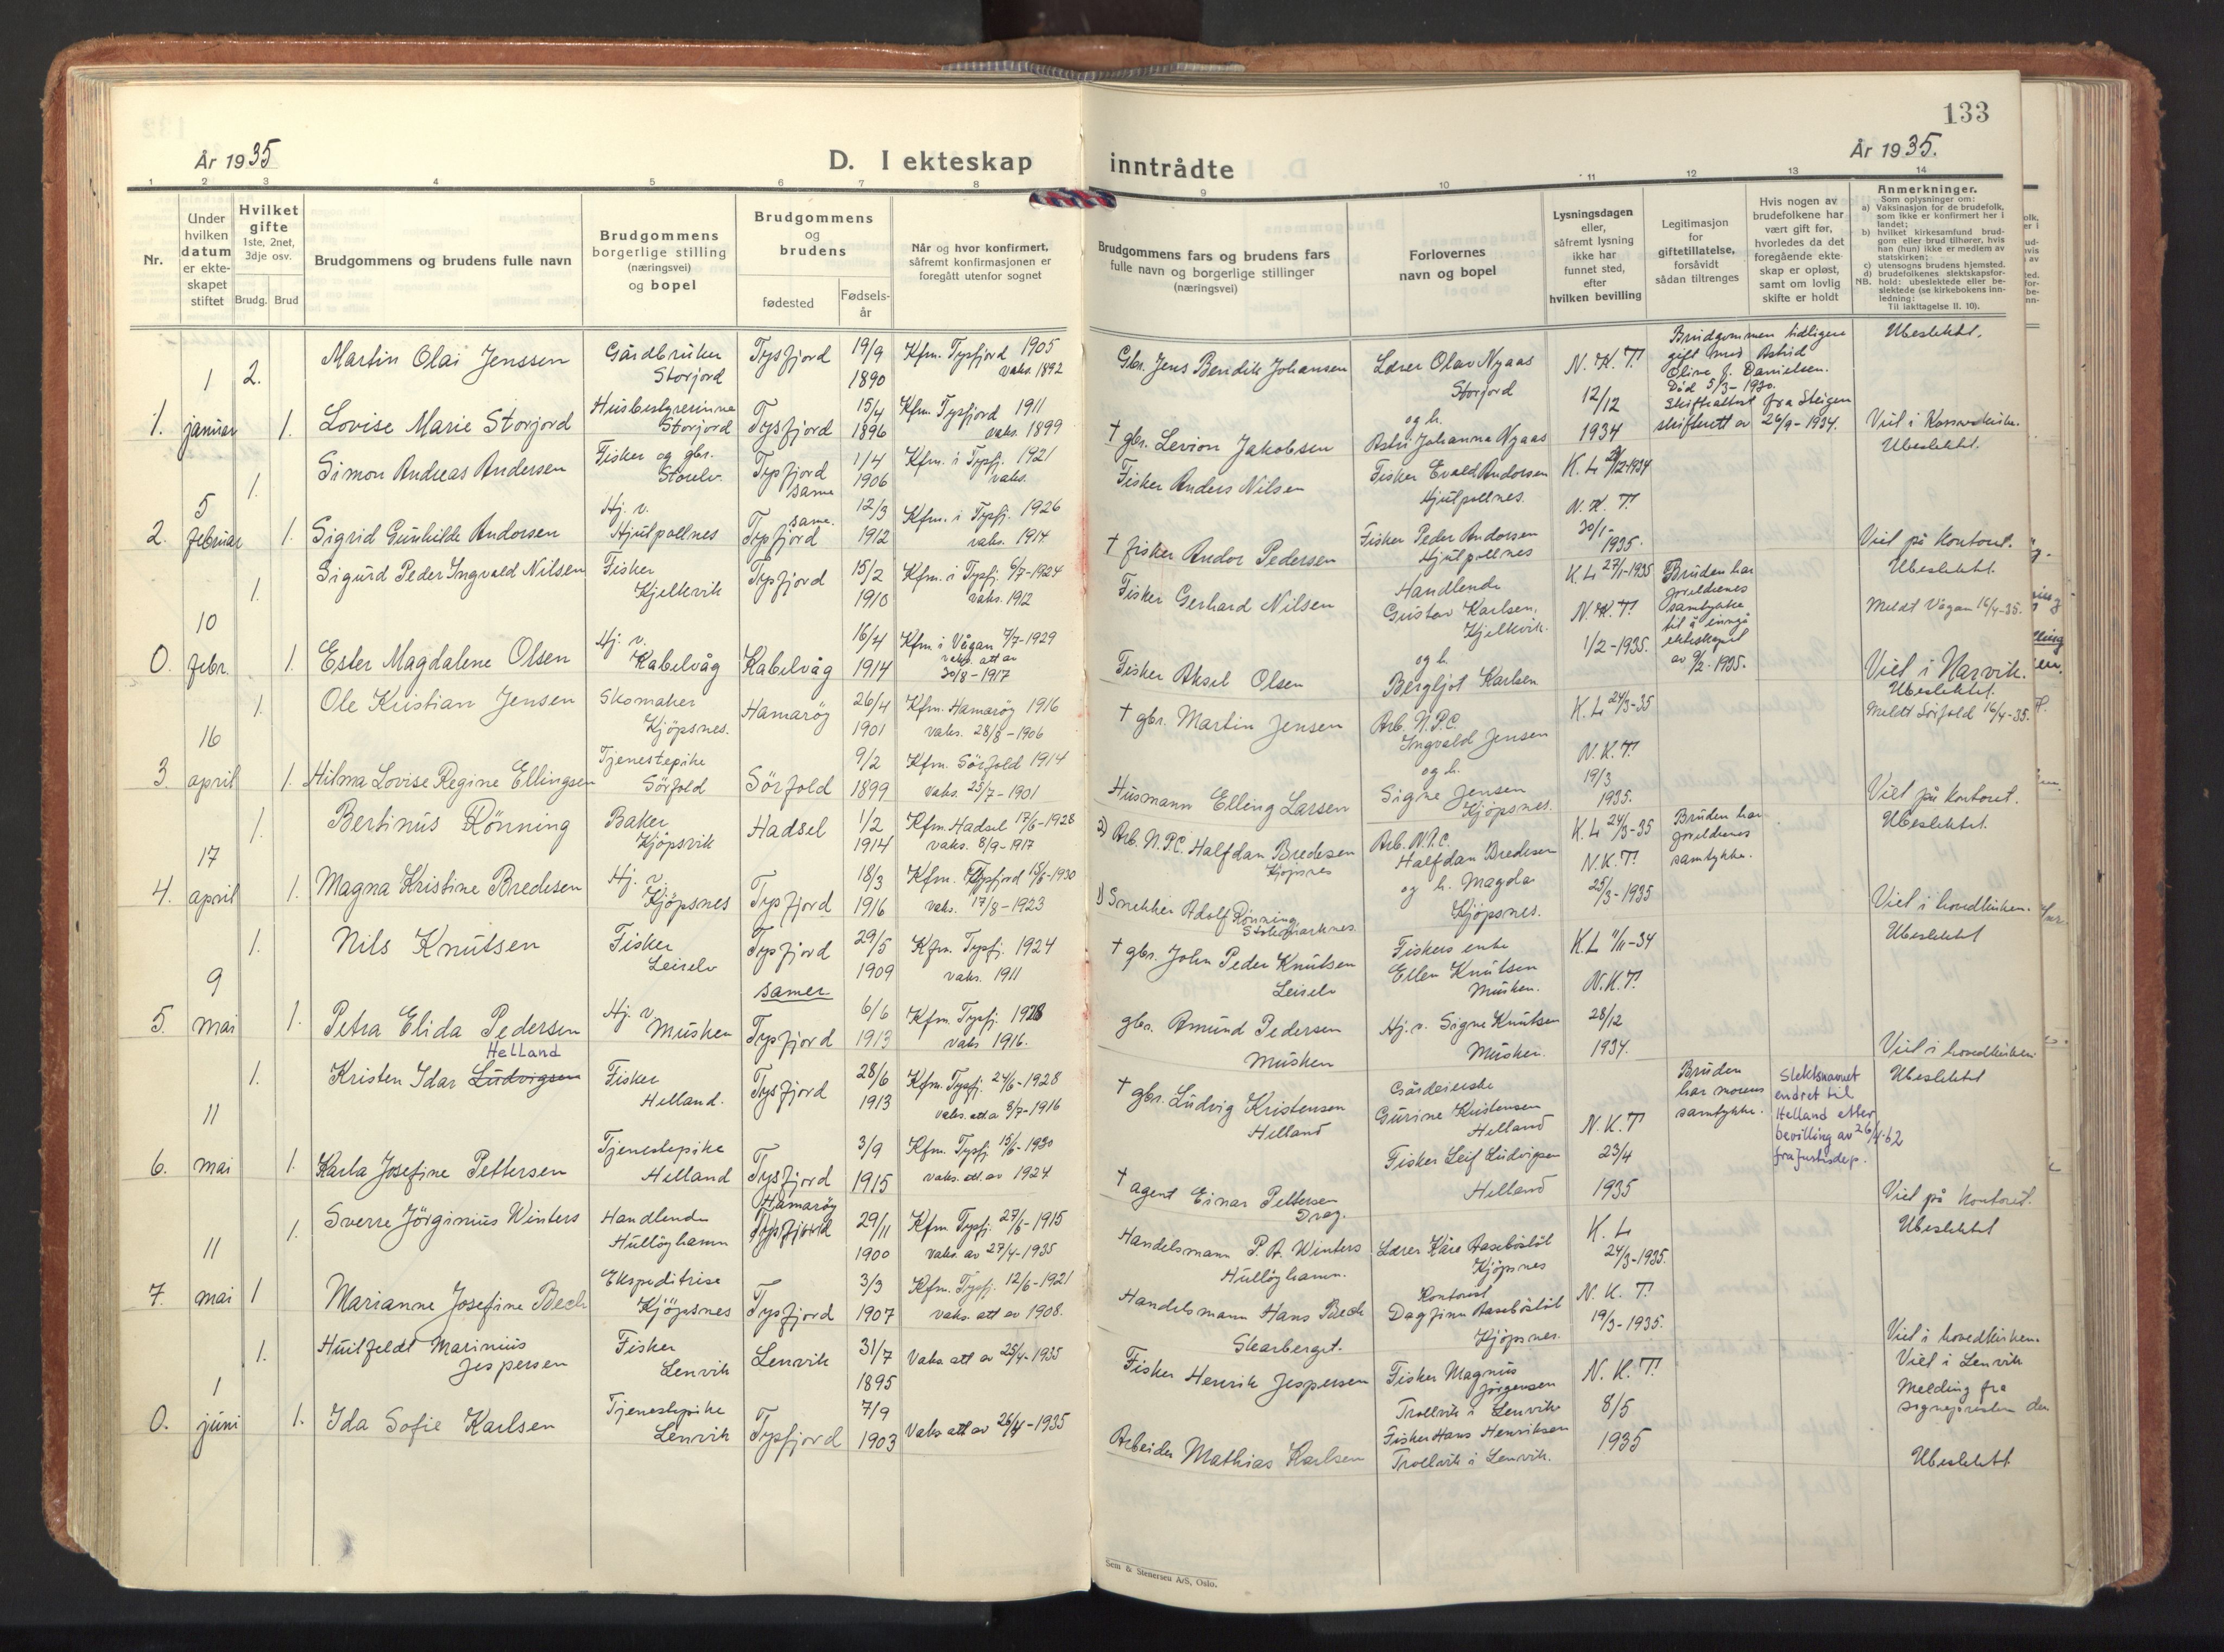 133
År 1935
D. I ekteskap
inntrådte
År 1935.
1
2
3
4
5
6
7
8
9
10
11
12
13
14
Nr.
Under
hvilken
datum
er ekte-
skapet
stiftet
Hvilket
gifte
1ste, 2net,
3dje osv.
Brudg.
Brud
Brudgommens og brudens fulle navn
Brudgommens
borgerlige stilling
(næringsvei)
og bopel
Brudgommens
og
brudens
fødested
Fødsels-
år
Når og hvor konfirmert,
såfremt konfirmasjonen er
foregått utenfor sognet
Brudgommens fars og brudens fars
fulle navn og borgerlige stillinger
(næringsvei)
Forlovernes
navn og bopel
Lysningsdagen
eller,
såfremt lysning
ikke har
funnet sted,
efter
hvilken bevilling
Legitimasjon
for
giftetillatelse,
forsåvidt
sådan tiltrenges
Hvis nogen av
brudefolkene har
vært gift før,
hvorledes da det
foregående ekte-
skap er opløst,
samt om lovlig
skifte er holdt
Anmerkninger.
Som oplysninger om:
a) Vaksinasjon for de brudefolk,
som ikke er konfirmert her i
landet;
b) hvilket kirkesamfund brud-
gom eller brud tilhører, hvis
han (hun) ikke er medlem av
statskirken;
c) utensogns brudens hjemsted.
d) brudefolkenes slektskapsfor-
NB. hold: ubeslektede eller be-
slektede (se kirkebokens inn-
ledning:
Til iakttagelse II. 10).
1. 1 januar
2.
Martin Olai Jenssen
Gårdbruker
Storjord
Tysfjord
19/9
1890
Kfm. Tysfjord 1905
vaks. 1892
Gbr. Jens Bendik Johansen
Lærer Olav Nyaas
Storjord
N. K. T.
12/12
1934
Brudgommen tidligere
gift med Astrid
Oline J. Danielsen.
Død 5/3-1930.
Skifteattest fra Steigen
skifterett av 26/9-1934.
Ubeslektet.
1.
Lovise Marie Storjord
Husbestyrerinne
Storjord
Tysfjord
15/4
1896
Kfm. Tysfjord 1911
vaks. 1899
† gbr. Levion Jakobsen
og h.
Astri Johanna Nyaas
2. 5 februar
1.
Simon Andreas Andersen
Fisker og gbr.
Storelv
Tysfjord
same
1/4
1906
Kfm. i Tysfj. 1921
vaks.
Fisker Anders Nilsen
Fisker Evald Andorsen
Hjulpollnes.
N. K. T.
30/1-
1935.
Ubeslektet.
1.
Sigrid Gunhilde Andorsen
Hj. v.
Hjulpollnes
same.
Tysfjord
12/3
1912
Kfm. i Tysfj. 1926
vaks. 1914
† fisker Andor Pedersen
Fisker Peder Andorsen
Hjulpollnes
Viet på kontoret.
0. 10 febr.
1.
Sigurd Peder Ingvald Nilsen
Fisker
Kjelkvik
Tysfjord
15/2
1910
Kfm. i Tysfj. 6/7-1924
vaks. 1912
Fisker Gerhard Nilsen
Handlende
Gustav Karlsen,
Kjelkvik.
K. L. 27/1-1935
N. K. T.
1/2-1935.
Bruden har
foreldrenes
samtykke
til å inngå
ekteskapet
av 9/2-1935.
Ubeslektet.
Meldt Vågan 16/4-35.
1.
Ester Magdalene Olsen
Hj. v.
Kabelvåg
Kabelvåg
16/4
1914
Kfm i Vågan 7/7-1929
vaks. att av
30/8-1917
Fisker Aksel Olsen
og h.
Bergljot Karlsen
Viet i Narvik.
3 16 april
1.
Ole Kristian Jensen
Skomaker
Kjöpsnes.
Hamaröy
26/4
1901
Kfm. Hamaröy 1916
vaks. 28/8-1906
† gbr. Martin Jensen
Arb. N.P.C.
Ingvald Jensen
K. L. 24/3-35
N. K. T.
19/3
1935.
Ubeslektet.
Meldt Sörfold 16/4-35.
1.
Hilma Lovise Regine Ellingsen
Tjenestepike
Sörfold
Sörfold
9/2
1899
Kfm. Sörfold 1914
vaks. 25/7-1901
Husmann Elling Larsen
og h.
Signe Jensen
Kjöpsnes.
Viet på kontoret.
4. 17 april
1.
Bertinus Rönning
Baker
Kjöpsvik
Hadsel
1/2
1914
Kfm. Hadsel 17/6-1928
vaks. 8/9-1917
2) Arb. N.P.C. Halfdan Bredesen
Kjöpsnes
Arb. N.P.C.
Halfdan Bredesen
og h. Magda
Kjöpsnes.
K. L. 24/3-35
N.K.T.
25/3-1935
Bruden har
foreldrenes
samtykke.
Ubeslektet.
1.
Magna Kristine Bredesen
Hj. v.
Kjöpsnes
Tysfjord
18/3
1916
Kfm. Tysfjord 15/6-1930
vaks. 17/8-1923
1) Snekker Adolf Rönning
Viet i hovedkirken.
5. 9 mai
1.
Nils Knutsen
Fisker
Leiselv
Tysfjord
29/5
1909
Kfm. Tysfj. 1924
vaks. 1911
samer
† gbr. John Peder Knutsen
Leiselv
Fiskers enke
Ellen Knutsen
Musken.
K.L. 11/11-34
N.K.T.
28/12
1934.
Ubeslektet
1.
Petra Elida Pedersen
Hj. v.
Musken
Tysfjord
6/6
1913
Kfm. Tysfj. 1928
vaks 1916.
gbr. Amund Pedersen
Musken
Hj. v. Signe Knutsen
Musken.
Viet i hovedkirken
6. 11 mai
1.
Helland
Kristen Idar Ludvigsen
Fisker
Helland.
Tysfjord
28/6
1913
Kfm. Tysfj. 24/6-1928
vaks. att. a 8/7-1916
† gbr. Ludvig Kristensen
Helland
Gårdeierske
Gurine Kristensen
Helland
N. K. T
23/4
1935
Bruden
har morens
samtykke.
Slektsnavnet
endret til
Helland etter
bevilling av 26/4-62
fra Justisdep.
Ubeslektet
1.
Karla Josefine Pettersen
Tjenestepike
Helland
Tysfjord
3/9
1915
Kfm. Tysfj. 15/6-1930
vaks. att. av 1924
† agent Einar Pettersen
Drag.
Fisker Leif Ludvigsen
Helland
Viet på kontoret.
7. 11 mai
1.
Sverre Jörginius Winters
Handlende
Hullöyhamn
Hamaröy
Tysfjord
29/11
1900
Kfm Tysfj. 27/6-1915
vaks. av 27/4-1935
Handelsmann P. A. Winters
Hullöyhamn.
Lærer Kåre Aaseböstöl
Kjöpsnes
K. L.
24/3-1935.
N. K. T.
19/3-1935.
Ubeslektet
1
Marianne Josefine Bech
Ekspeditrise
Kjöpsnes
Tysfjord
3/3
1907
Kfm. Tysfj. 12/6-1921
vaks. att av 1908.
Handelsmann Hans Bech
Skarberget.
Kontorist
Dagfinn Aaseböstöl
Kjöpsnes.
Viet i hovedkirken.
0. 1 juni
1.
Huitfeldt Marinius
Jespersen
Fisker
Lenvik
Lenvik
31/7
1895
Vaks. att av 25/4-1935
Fisker Henrik Jespersen
Fisker Magnus
Jörgensen
Trollvik i Lenvik
N. K. T.
8/5
1935
Viet i Lenvik
Melding fra
sognepresten der
1.
Ida Sofie Karlsen
Tjenestepike
Lenvik
Tysfjord
7/9
1903
Vaks att av 26/4-1935
Arbeider Mathias Karlsen
Fisker Hans Henriksen
Trollvik i Lenvik.
Ubeslektet
Sem & Stenersen A/S, Oslo.